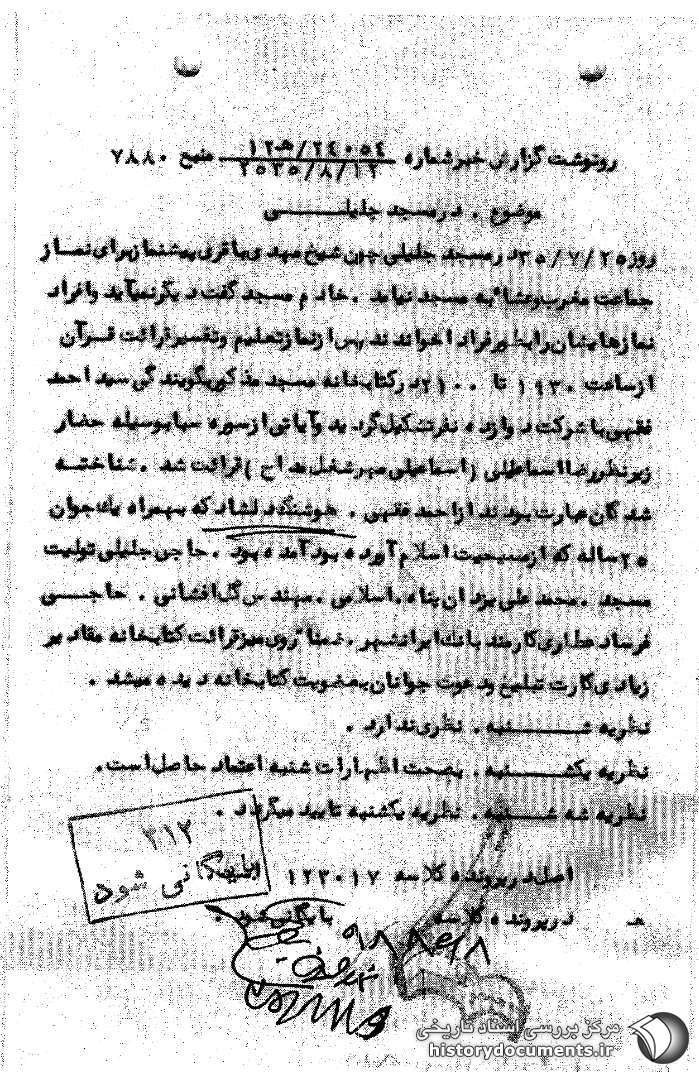 رونوشت گزارش خبر شماره ۲۴۰۵۴/ه‍۱۲ منبع ۷۸۸۰
۲۵۳۵/۸/۱۲
موضوع . در مسجد جلیلی
روز ۳۵/۷/۲۵ در مسجد جلیلی چون شیخ مهدی باقری پیشنماز برای نماز
جماعت مغرب و عشا به مسجد نیامد . خادم مسجد گفت دیگر نمیآید و افراد
نمازهایشان را بطور فرادا خواندند پس از نماز تعلیم و تفسیر قرائت قرآن
از ساعت ۱۹۳۰ تا ۲۱۰۰ در کتابخانه مسجد مذکور بگویندگی سید احمد
فقهی با شرکت دوازده نفر تشکیل گردید و آیاتی از سوره سبا بوسیله حضار
زیر نظر رضا اسماعیلی (اسماعیلی میر شغل مداح) قرائت شد . شناخته
شدگان عبارت بودند از احمد فقهی . هوشنگ دلشاد که بهمراه یک جوان
۲۵ ساله که از مسیحیت اسلام آورده بود آمده بود . حاجی جلیلی تولیت
مسجد . محمد علی یزدان پناه . اسلامی . مهندس گل افشانی . حاجی
فرساد عطاری کارمند بانک ایرانشهر . ضمنا روی میز قرائت کتابخانه مقادیر
زیادی کارت تبلیغ و دعوت جوانان بعضویت کتابخانه دیده میشد .
نظریه شنبه . نظری ندارد .
نظریه یکشنبه . بصحت اظهارات شنبه اعتماد حاصل است .
نظریه سه شنبه . نظریه یکشنبه تایید میگردد .
۳۱۲
بایگانی شود
اصل در پرونده کلاسه ۱۲۳۰۱۷
در پرونده کلاسه بایگانی شود .
مرکز بررسی اسناد تاریخی
historydocuments.ir